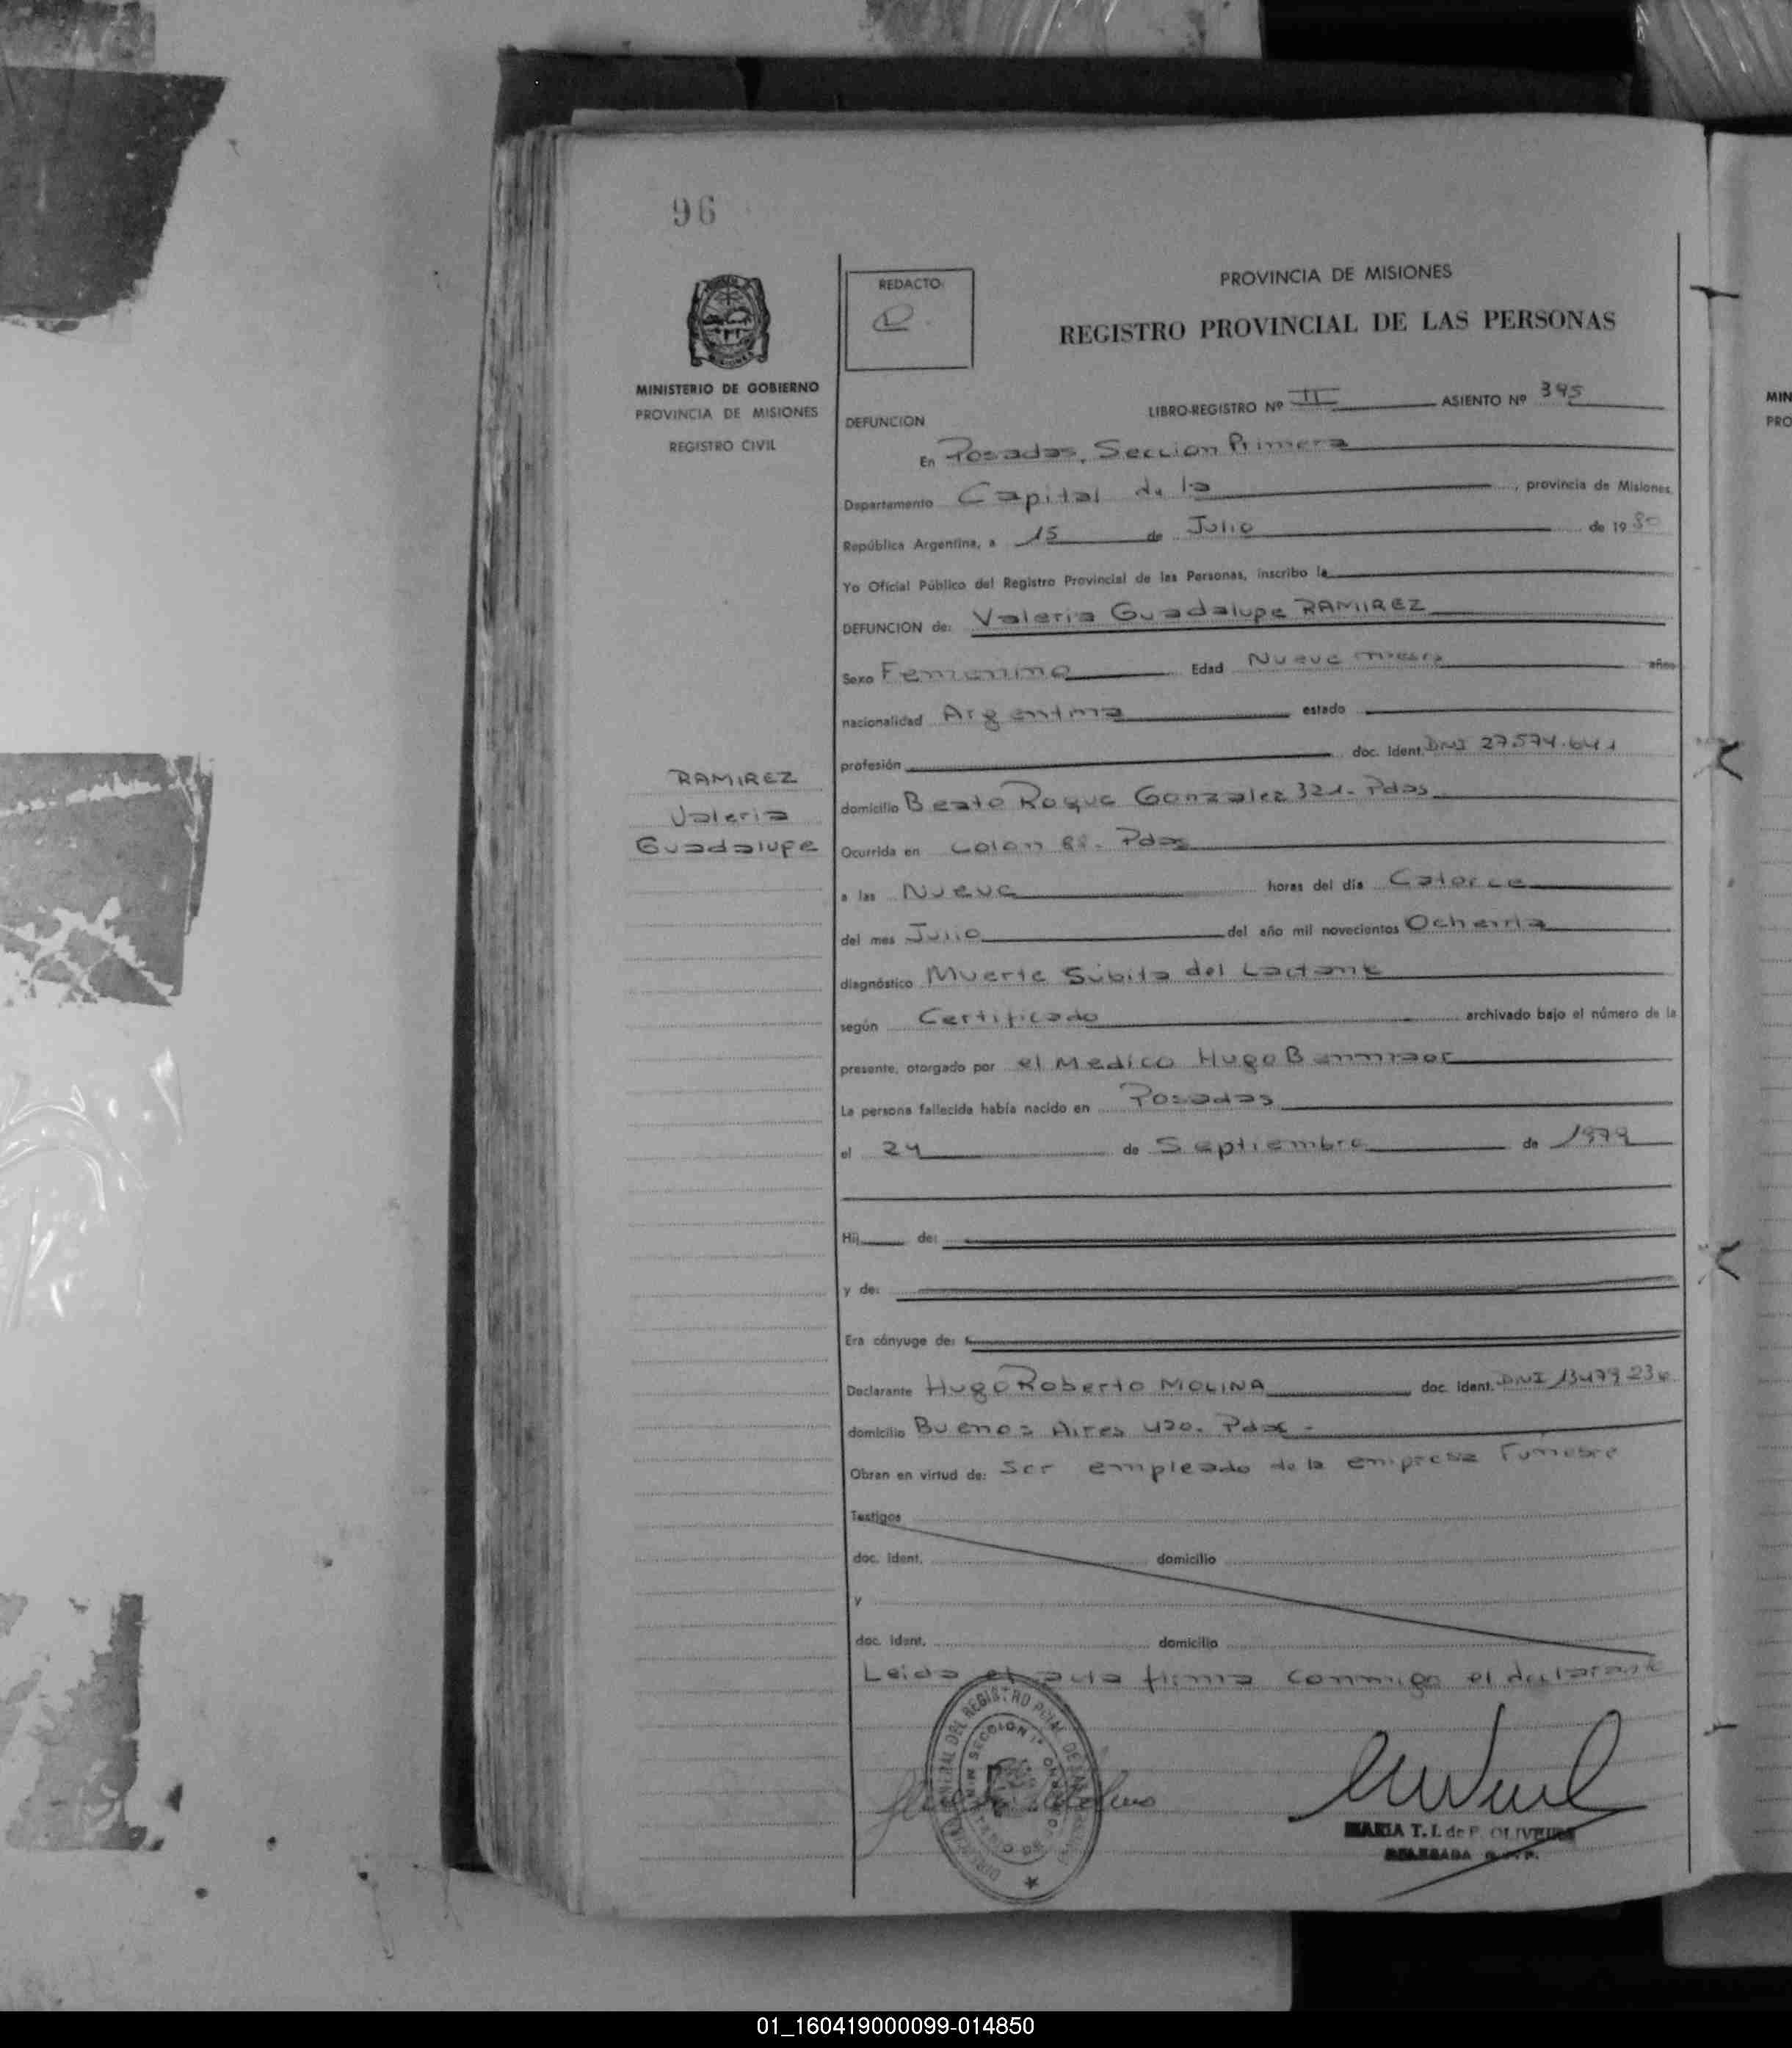 96
MINISTERIO DE GOBIERNO
PROVINCIA DE MISIONES
REGISTRO CIVIL
REDACTO
PROVINCIA DE MISIONES
REGISTRO PROVINCIAL DE LAS PERSONAS
LIBRO-REGISTRO Nº II ASIENTO Nº 395
DEFUNCION
En Posadas, Seccion Primera
Departamento Capital de la, provincia de Misiones
República Argentina, a 15 de Julio de 1980
Yo Oficial Público del Registro Provincial de las Personas, inscribo la
DEFUNCION de: Valeria Guadalupe RAMIREZ
Sexo Femenino Edad Nueve meses años
nacionalidad Argentina estado
profesión doc. Ident. DNI 27.574.641
RAMIREZ
Valeria
Guadalupe
domicilio Beato Roque Gonzalez 321. Pdas
Ocurrida en Colon Pdas
a las Nueve horas del día Catorce
del mes Julio del año mil novecientos Ochenta
diagnóstico Muerte Súbita del Lactante
según Certificado archivado bajo el número de la
presente, otorgado por el Medico Hugo
La persona fallecida había nacido en Posadas
el 24 de Septiembre de 1979
Hij de:
y de:
Era cónyuge de:
Declarante Hugo Roberto MOLINA doc. Ident. DNI
domicilio Buenos Aires Pdas -
Obran en virtud de: Ser empleado de la empresa Funebre
Testigos
doc. Ident. domicilio
y
doc. Ident. domicilio
Leida el acta firma conmigo el declarante
MARIA T. I. de F. OLIVEIRA
DELEGADA
MIN
PRO
01_160419000099-014850